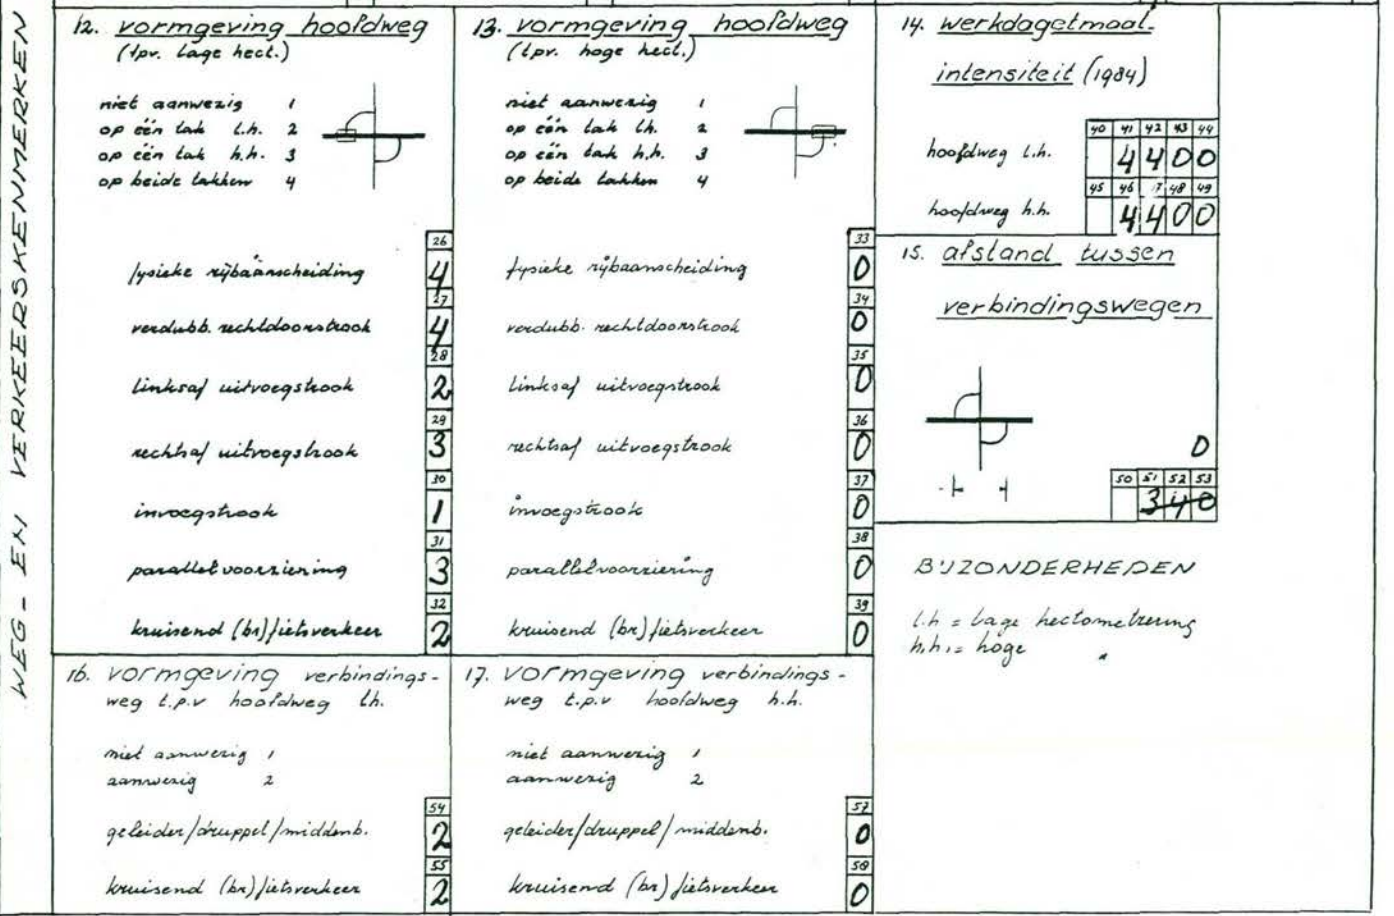 WEG- EN VERKEERSKENMERKEN
12. vormgeving hoofdweg
(tpv. lage hect.)
niet aanwezig 1
op één tak l.h. 2
op één tak h.h. 3
op beide takken 4
26
fysieke rijbaanscheiding 4
27
verdubb. rechtdoorstrook 4
28
linksaf uitvoegstrook 2
29
rechtsaf uitvoegstrook 3
30
invoegstrook 1
31
parallelvoorziening 3
32
kruisend (br) fietsverkeer 2
13. vormgeving hoofdweg
(tpv. hoge hect.)
niet aanwezig 1
op één tak l.h. 2
op één tak h.h. 3
op beide takken 4
33
fysieke rijbaanscheiding 0
34
verdubb. rechtdoorstrook 0
35
linksaf uitvoegstrook 0
36
rechtsaf uitvoegstrook 0
37
invoegstrook 0
38
parallelvoorziening 0
39
kruisend (br) fietsverkeer 0
14. werkdagetmaal-
intensiteit (1984)
40 41 42 43 44
hoofdweg l.h. 4400
45 46 17 48 49
hoofdweg h.h. 4400
15. afstand tussen
verbindingswegen
0
50 51 52 53
340
BIJZONDERHEDEN
l.h = lage hectometrering
h.h. = hoge "
16. vormgeving verbindings-
weg t.p.v hoofdweg l.h.
niet aanwezig 1
aanwezig 2
54
geleider/druppel/middenb. 2
55
kruisend (br) fietsverkeer 2
17. vormgeving verbindings-
weg t.p.v hoofdweg h.h.
niet aanwezig 1
aanwezig 2
57
geleider/druppel/middenb. 0
58
kruisend (br) fietsverkeer 0